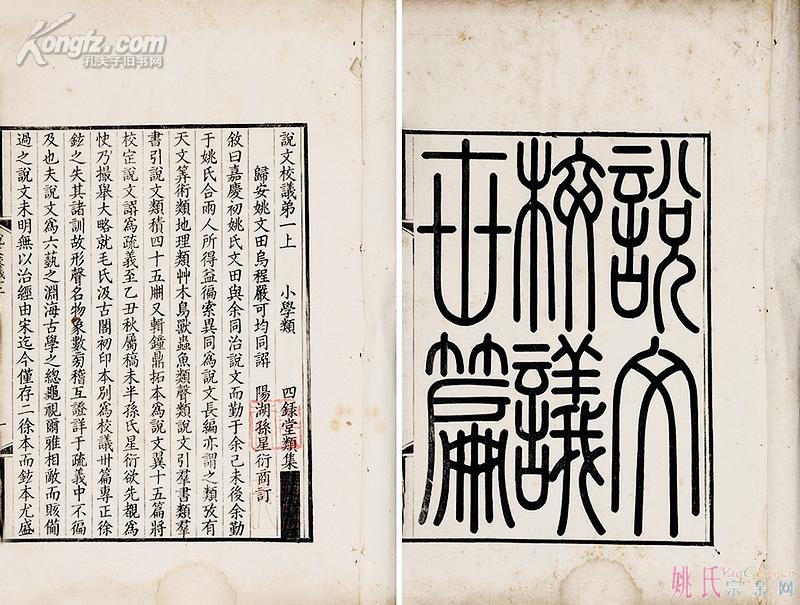 說文
校議
卅篇
說文校議弟一上 小學類 四錄堂類集
歸安姚文田烏程嚴可均同譔 陽湖孫星衍商訂
敘曰嘉慶初姚氏文田與余同治說文而勤于余己未後余勤
于姚氏合兩人所得益徧索異同爲說文長編亦謂之類攷有
天文筭術類地理類艸木鳥獸蟲魚類聲類說文引羣書類羣
書引說文類積四十五冊又輯鐘鼎拓本爲說文翼十五篇將
校定說文譔爲疏義至乙丑秋屬稿未半孫氏星衍欲先覩爲
快乃撮舉大略就毛氏汲古閣初印本別爲校議卅篇專正徐
鉉之失其諸訓故形聲名物象數㫄稽互證詳于疏義中不徧
及也夫說文爲六藝之淵海古學之總龜視爾雅相敵而賅備
過之說文未明無以治經由宋迄今僅存二徐本而鉉本尤盛
Kongfz.com
孔夫子旧书网
姚氏宗亲网